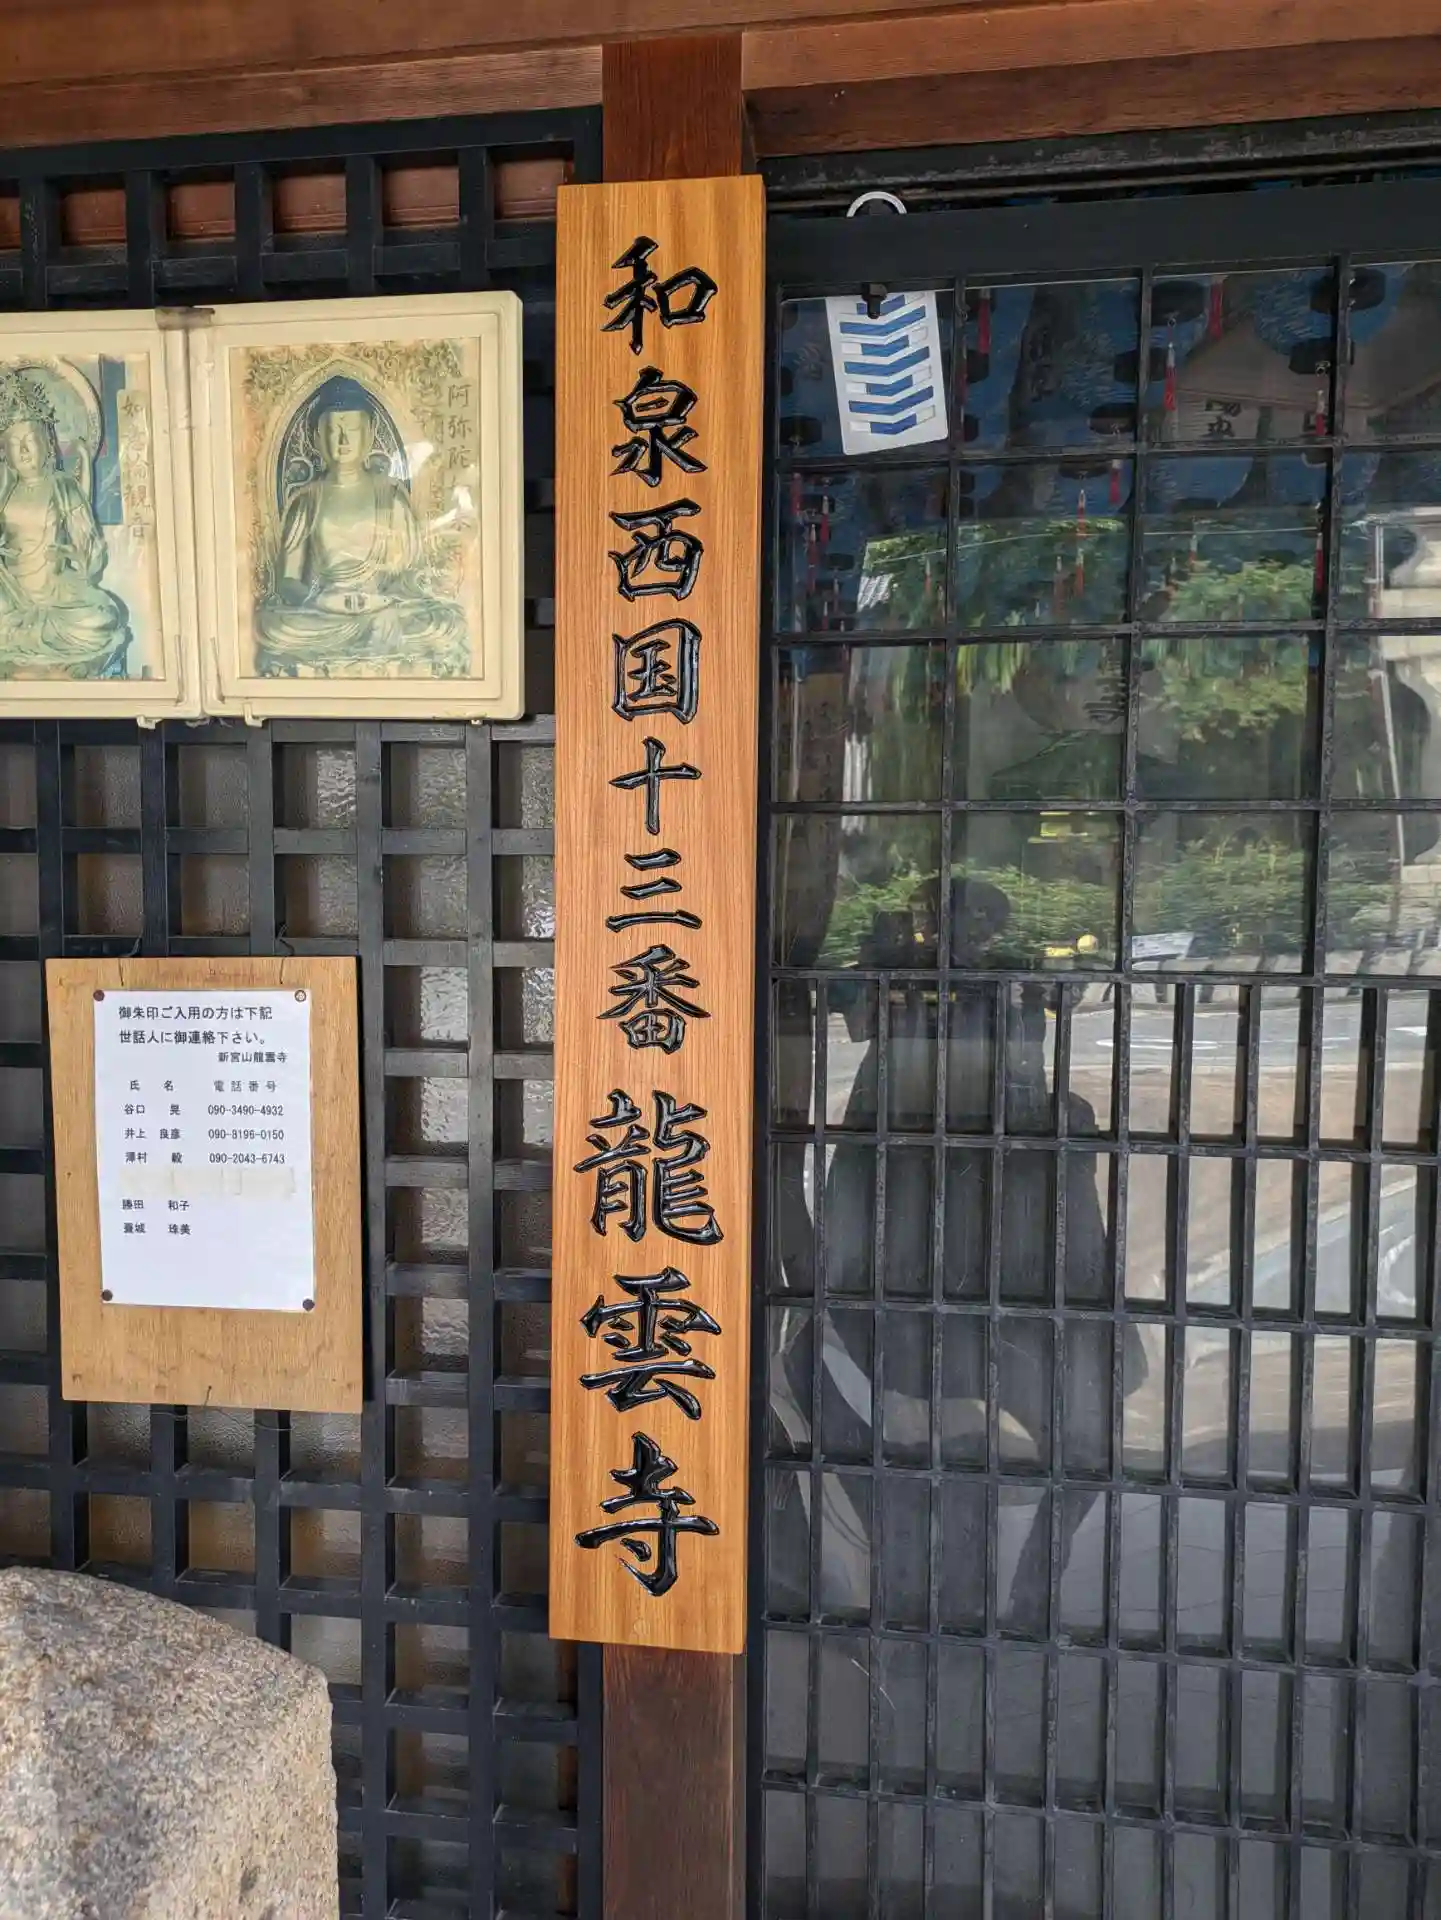 和泉西国十三番 龍雲寺
阿弥陀
観音
御朱印ご入用の方は下記
世話人に御連絡下さい。
新宮山龍雲寺
氏 名 電話番号
谷口 晃 090-3490-4932
井上 良彦 090-8196-0150
澤村 毅 090-2043-6743
勝田 和子
珠美